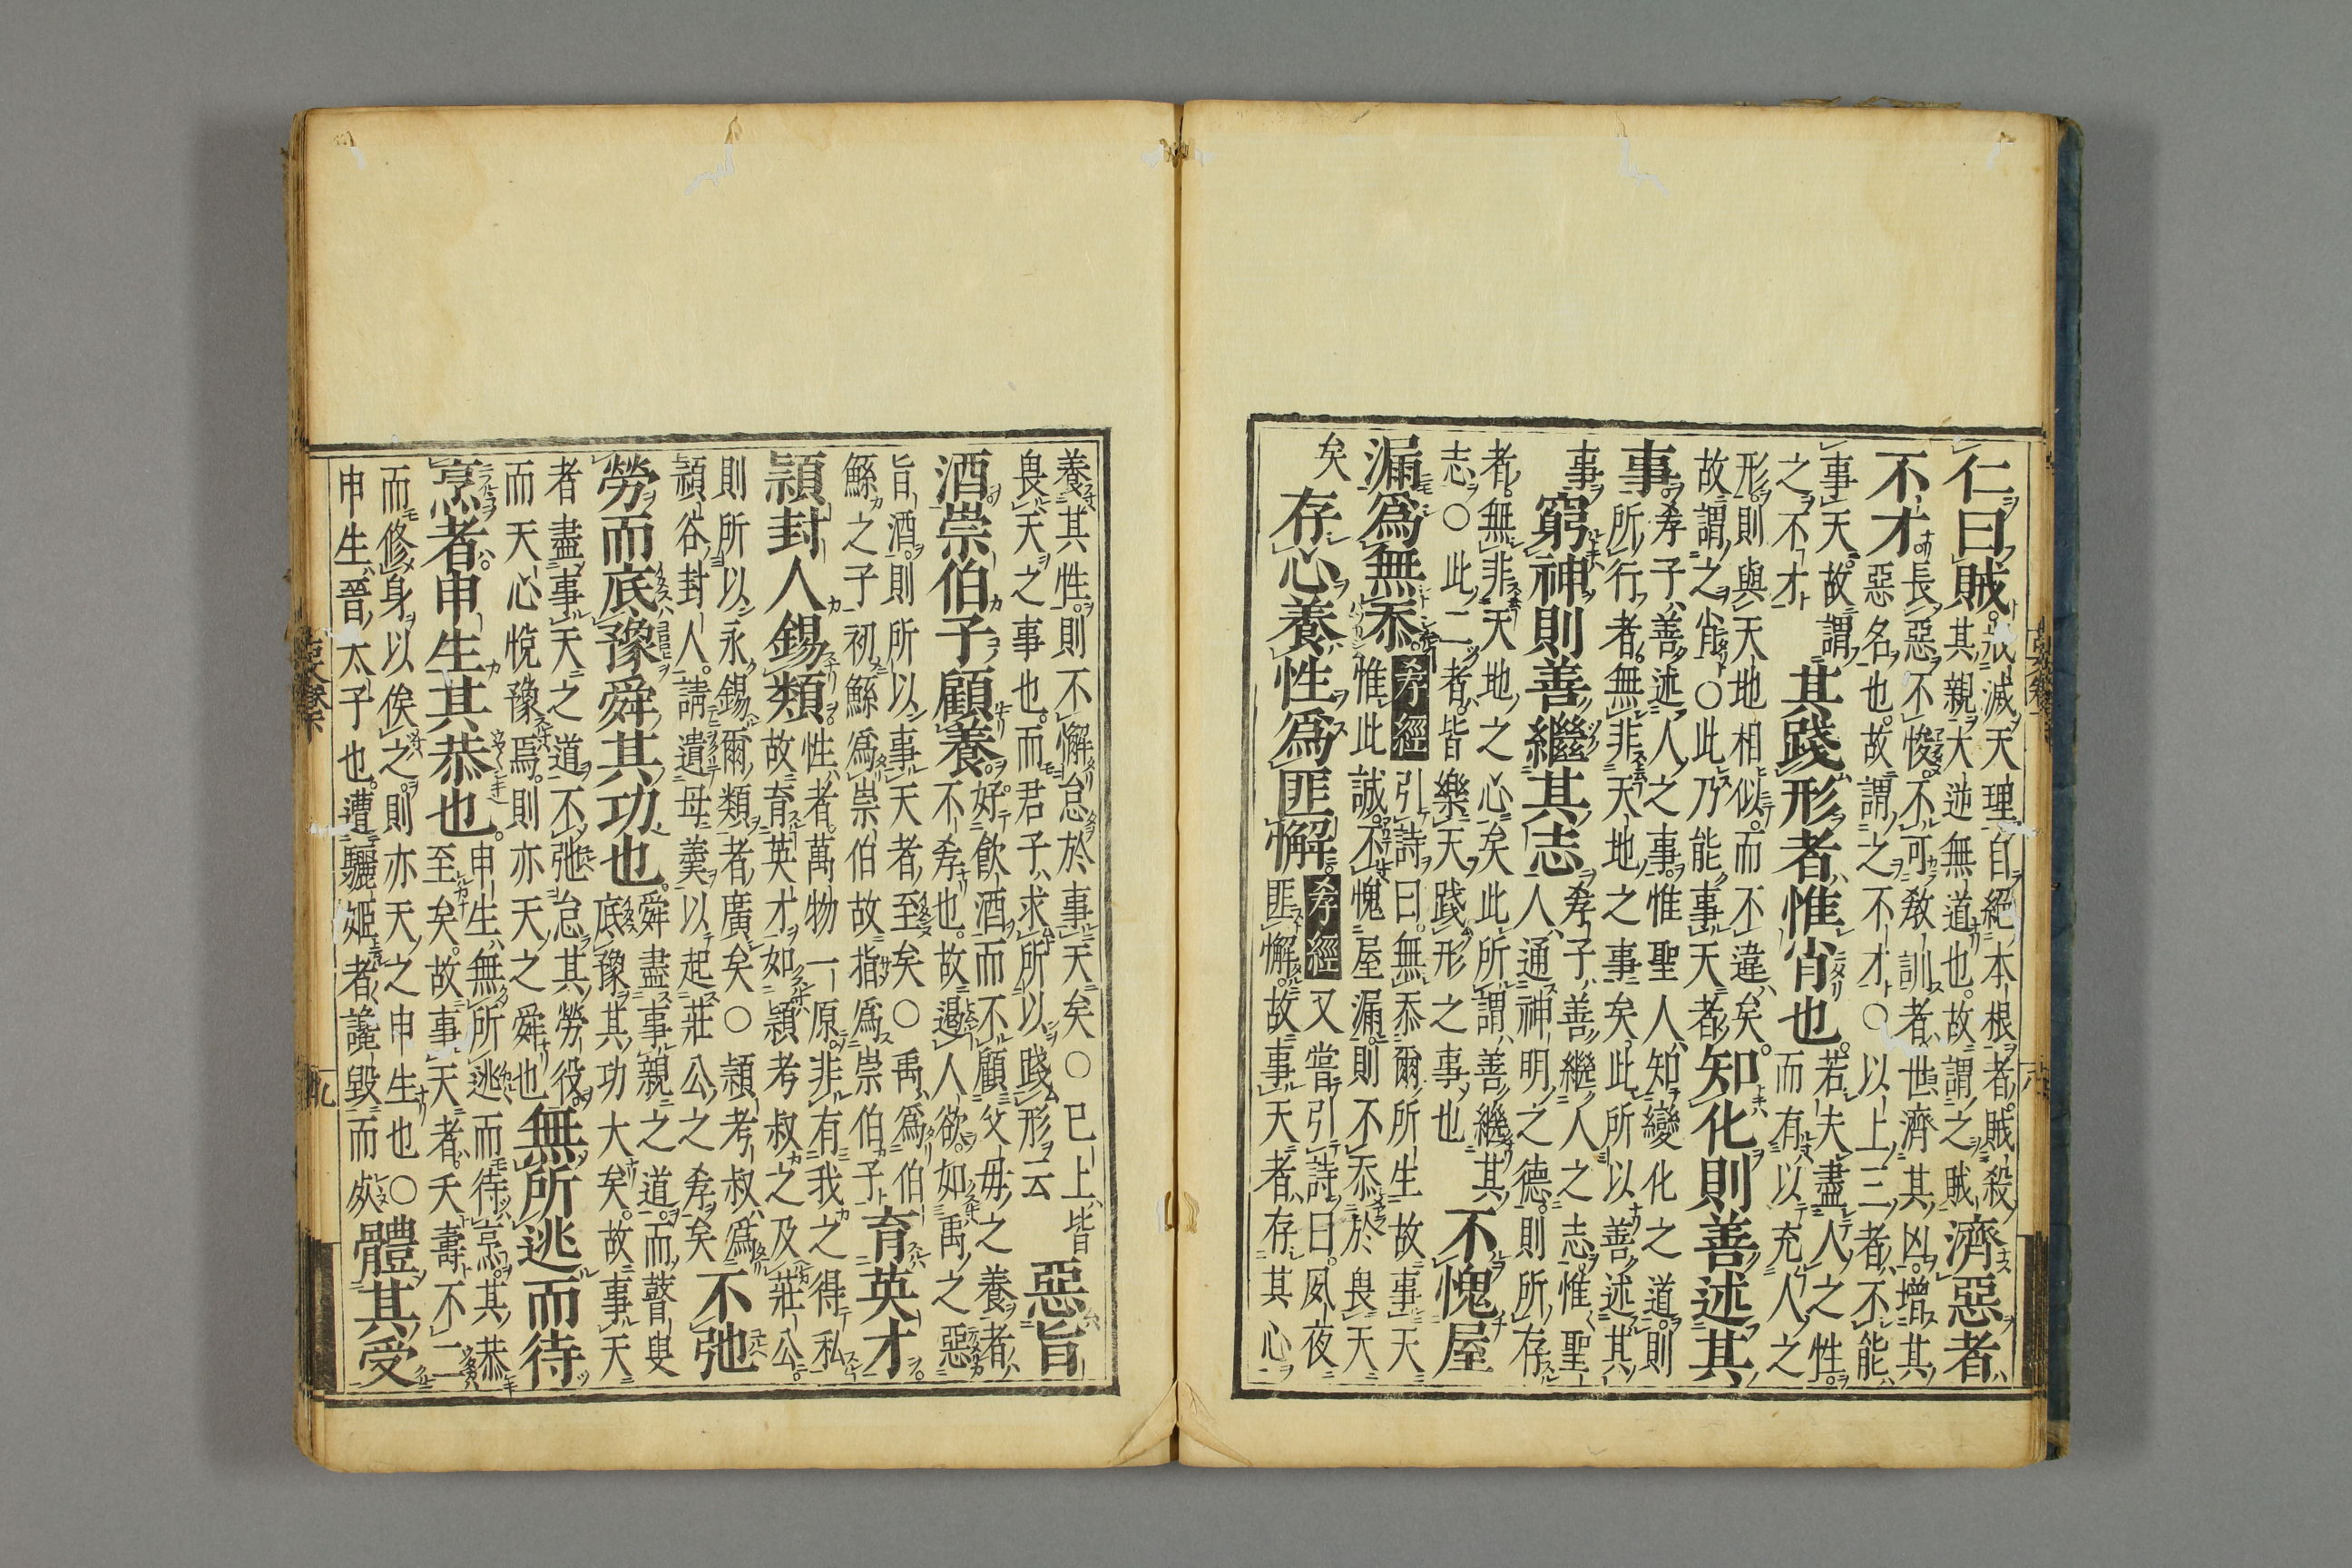 仁曰賊。戕滅天理自絕本根者。賊殺
其親大逆無道也。故謂之賊
濟惡者
不才 長惡不悛。不可敎訓者。世濟其凶。增其
惡名也。故謂之不才○以上三者不能
事天。故謂
之不才
其踐形者惟肖也。若夫盡人之性。
而有以充人之
形。則與天地相似。而不違矣。
故謂之肖○此乃能事天者
知化則善述其
事。孝子善述人之事。惟聖人知變化之道。則
所行者無非天地之事矣。此所以善述其
事
窮神則善繼其志 孝子善繼人之志。惟聖
人通神明之德。則所存
者。無非天地之心矣此所謂善繼其
志○此二者。皆樂天踐形之事也
不愧屋
漏爲無忝。孝經引詩曰。無忝爾所生故事天
惟此誠。不愧屋漏。則不忝於畏天
矣
存心養性爲匪懈。孝經又嘗引詩曰。夙夜
匪懈。故事天者。存其心
養其性。則不懈怠於事天矣○已上皆
畏天之事也。而君子求所以踐形云
惡旨
酒崇伯子顧養。好飮酒而不顧父毋之養者
不孝也。故遏人欲。如禹之惡
旨酒。則所以事天者至矣○禹爲伯
鯀之子初鯀爲崇伯故指爲崇伯子
育英才。
頴封人錫類。性者。萬物一原。非有我之得私
故育英才如頴考叔之及莊公。
則所以永錫爾類者廣矣○頴考叔爲
頴谷封人。請遺母羹以起莊公之孝矣
不弛
勞而底豫舜其功也。舜盡事親之道。而瞽叟
底豫其功大矣。故事天
者盡事天之道。不弛怠其勞役
而天心悅豫焉。則亦天之舜也
無所逃而待
烹者申生其恭也。申生無所逃而待烹。其恭
至矣。故事天者。夭壽不二
而修身以俟之。則亦天之申生也○
申生晉太子也。遭驪姬者讒毀而死
體其受